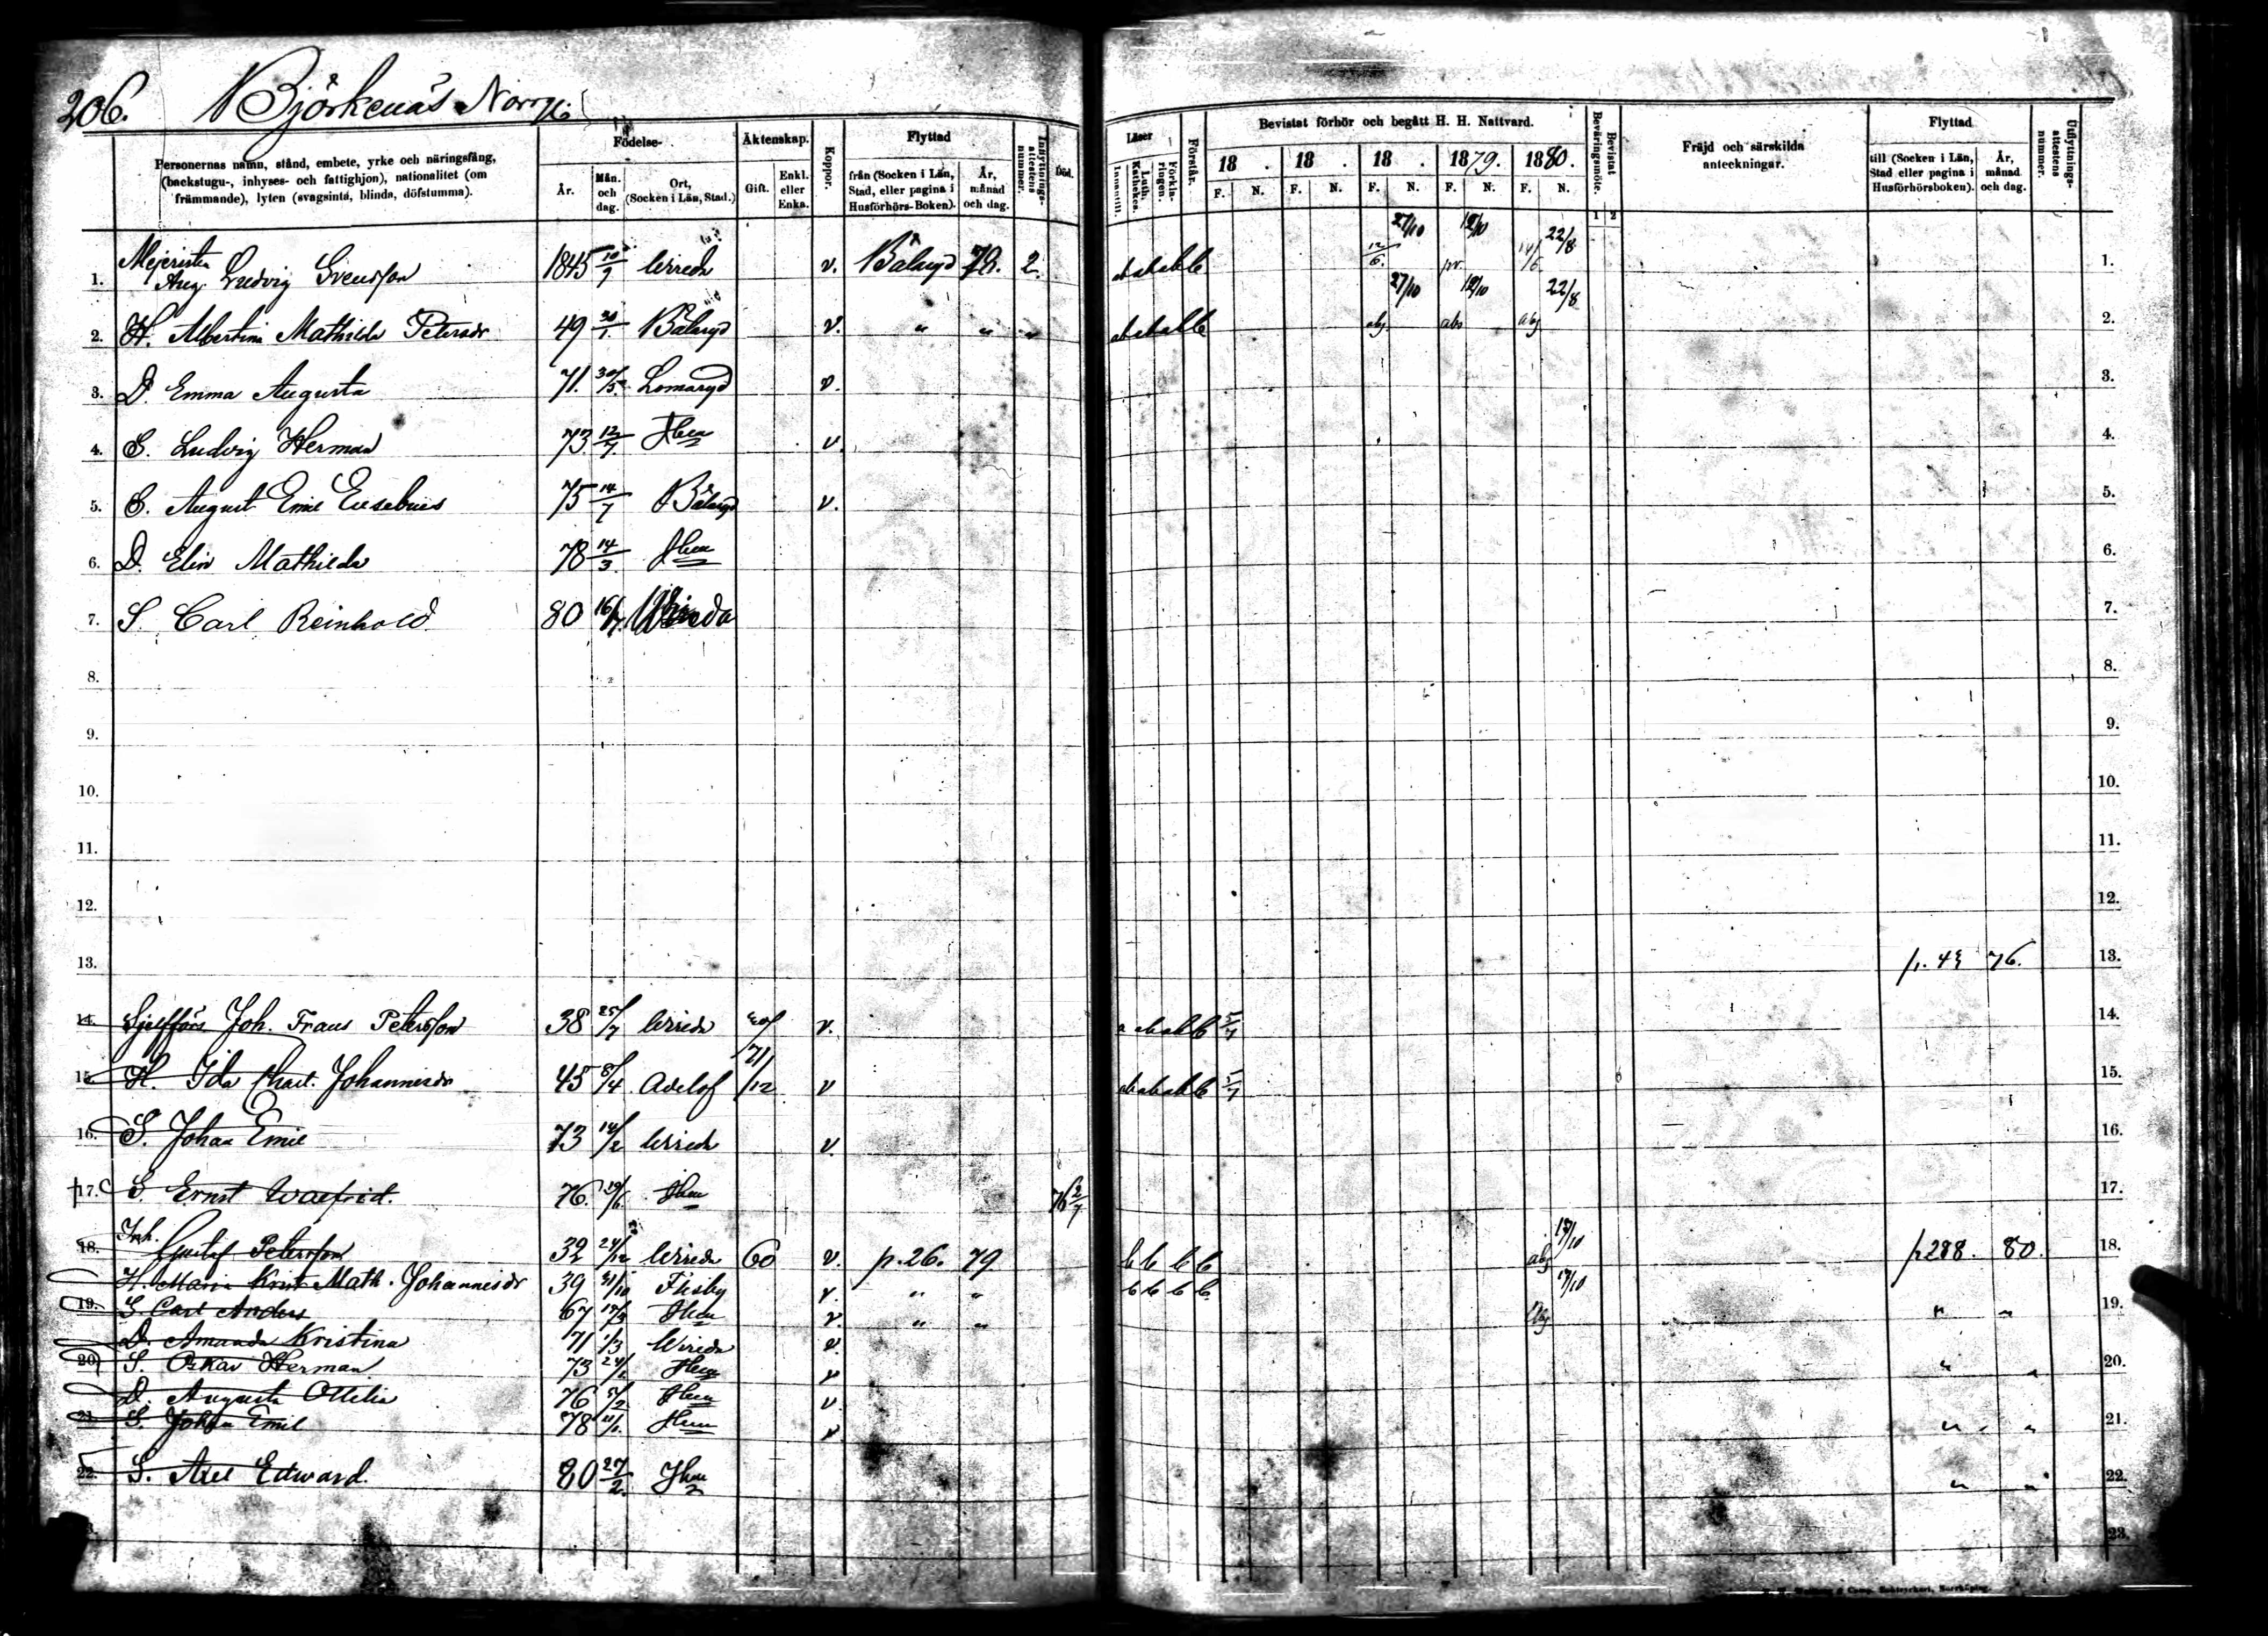 206. Björkenäs Norrg.
Personernas namn, stånd, embete, yrke och näringsfång, (backstugu-, inhyses- och fattighjon), nationalitet (om främmande), lyten (svagsinta, blinda, döfstumma).
Födelse-
År.
Mån. och dag.
Ort, (Socken i Län, Stad.)
Äktenskap.
Gift.
Enkl. eller Enka.
Koppor.
Flyttad
från (Socken i Län, Stad, eller pagina i Husförhörs-Boken).
År, månad och dag.
Inflyttnings-attestens nummer.
Död.
Läser
Innantill.
Luth. Katheketes.
Förkla-ringen.
Förstår.
Bevistat förhör och begått H. H. Nattvard.
18 . 18 . 18 . 1879. 1880.
F. N. F. N. F. N. F. N. F. N.
Bevistat Beväringsmöte.
1 2
Fräjd och särskilda anteckningar.
Flyttad
till (Socken i Län, Stad eller pagina i Husförhörsboken).
År, månad och dag.
Utflyttnings-attestens nummer.
27/10 12/10 22/8
1. Mejeristen Aug. Ludvig Svensson 1845 10/9 Wireda v. Bälaryd 78. 2. 12/6. pr. 14/6 1.
27/10 12/10 22/8
2. H. Albertina Mathilda Petersdr 49 30/1. Bälaryd v. " " " abs abs 2.
3. D. Emma Augusta 71. 30/5. Lomaryd v. 3.
4. S. Ludvig Herman 73 12/7 Ibm v. 4.
5. S. August Emil Eusebius 75 14/7 Bälaryd v. 5.
6. D. Elin Mathilda 78 14/3. Ibm 6.
7. S. Carl Reinhold. 80 16/7. Wireda 7.
8. 8.
9. 9.
10. 10.
11. 11.
12. 12.
13. 76. 13.
14. Joh. Frans Petersson 38 25/7 Wireda v. 5/7 14.
15. H. Ida Charl. Johannesdr 45 8/4 Adelöf 71/12 v 5/7 15.
16. S. Johan Emil 73 14/2 Wireda v. 16.
17. S. Ernst Walfrid. 76. 29/6. Ibm 76 2/7 17.
18. Inh. Gustaf Petersson 32 24/12 Wireda 60 v. p. 26. 79 b b b b abs 17/10 p288. 80. 18.
H. Maria Krist. Math. Johannesdr 39 Flisby v. " " b b b b. 17/10
19. S. Carl Anders 67 17/3 Ibm v. " " " " 19.
D. Amanda Kristina 71 1/3 Wireda v.
20. S. Oskar Herman 73 24/2 Ibm v " " 20.
D. Augusta Ottilia 76 5/2 Ibm v.
21. S. Johan Emil 78 Ibm v. " " 21.
22. S. Axel Edward. 80 27/2. Ibm " " 22.
23.